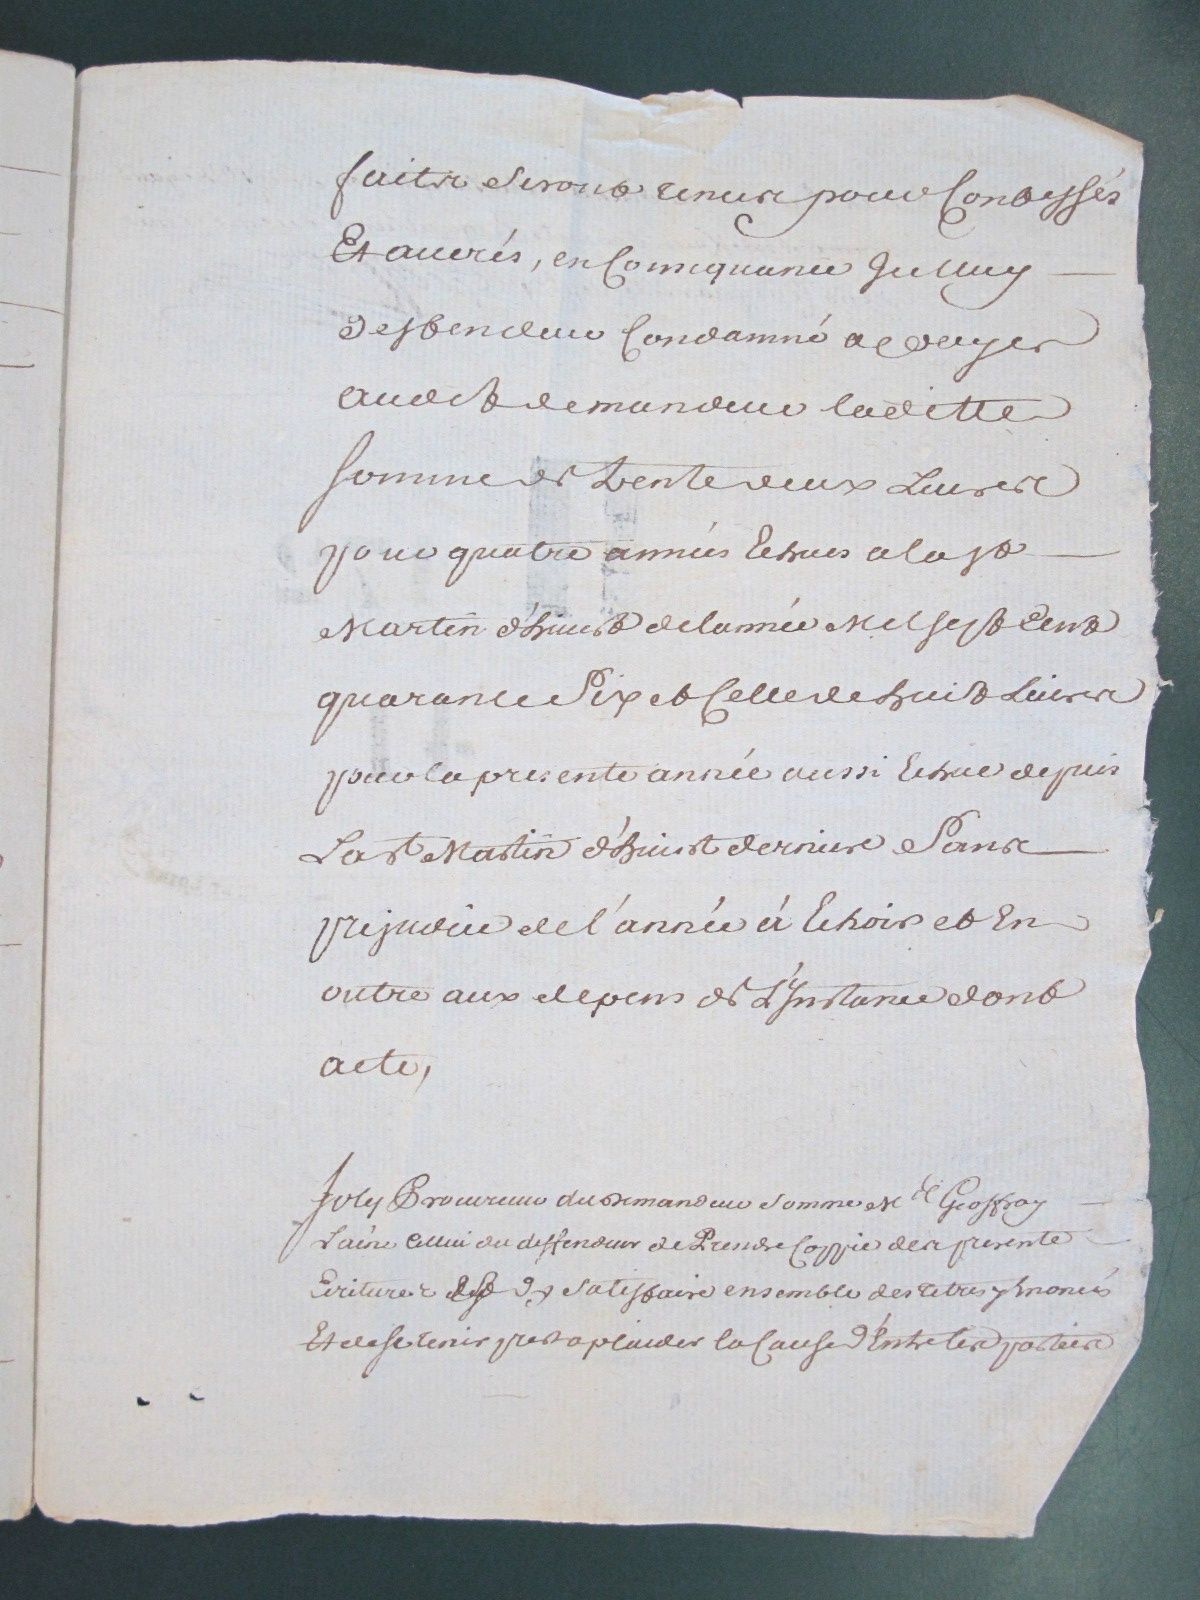 faits seront tenus pour Confessés
Et averés, en Consequence Iceluy
deffendeur Condamné a payer
audit demandeur ladite
somme de trente deux Livres
pour quatre années Echues a la St
Martin d'hivert de lannée Mil sept Cent
quarante Six et Celle de huit Livres
pour la presente année aussi Echue depuis
La St Martin d'hivert derniere Sans
prejudice de l'année á Echoir et En
outre aux depens de L'Instance dont
acte,
Joly Procureur du demandeur somme Me Geoffroy
L'ainé Celluy du deffendeur de Prendre Coppie des presente
Ecritures dy satisfaire ensemble des titres y Enoncés
Et de se tenir prest a plaider la Cause d'Entre les parties